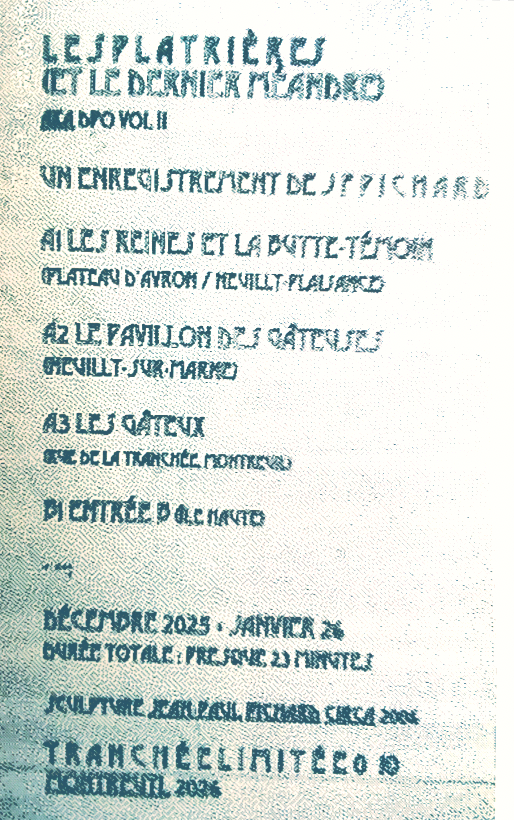 LES PLATRIÈRES
(ET LE DERNIER MÉANDRE)
AKA DPO VOL II
UN ENREGISTREMENT DE JP PICHARD
A1 LES REINES ET LA BUTTE-TÉMOIN
(PLATEAU D'AVRON / NEUILLY-PLAISANCE)
A2 LE PAVILLON DES GÂTEUSES
(NEUILLY-SUR-MARNE)
A3 LES GÂTEUX
(RUE DE LA TRANCHÉE MONTREUIL)
B1 ENTRÉE D (LE HAUTE)
DÉCEMBRE 2025 - JANVIER 26
DURÉE TOTALE : PRESQUE 23 MINUTES
SCULPTURE JEAN PAUL PICHARD CIRCA
TRANCHÉE LIMITÉE
MONTREUIL 2026